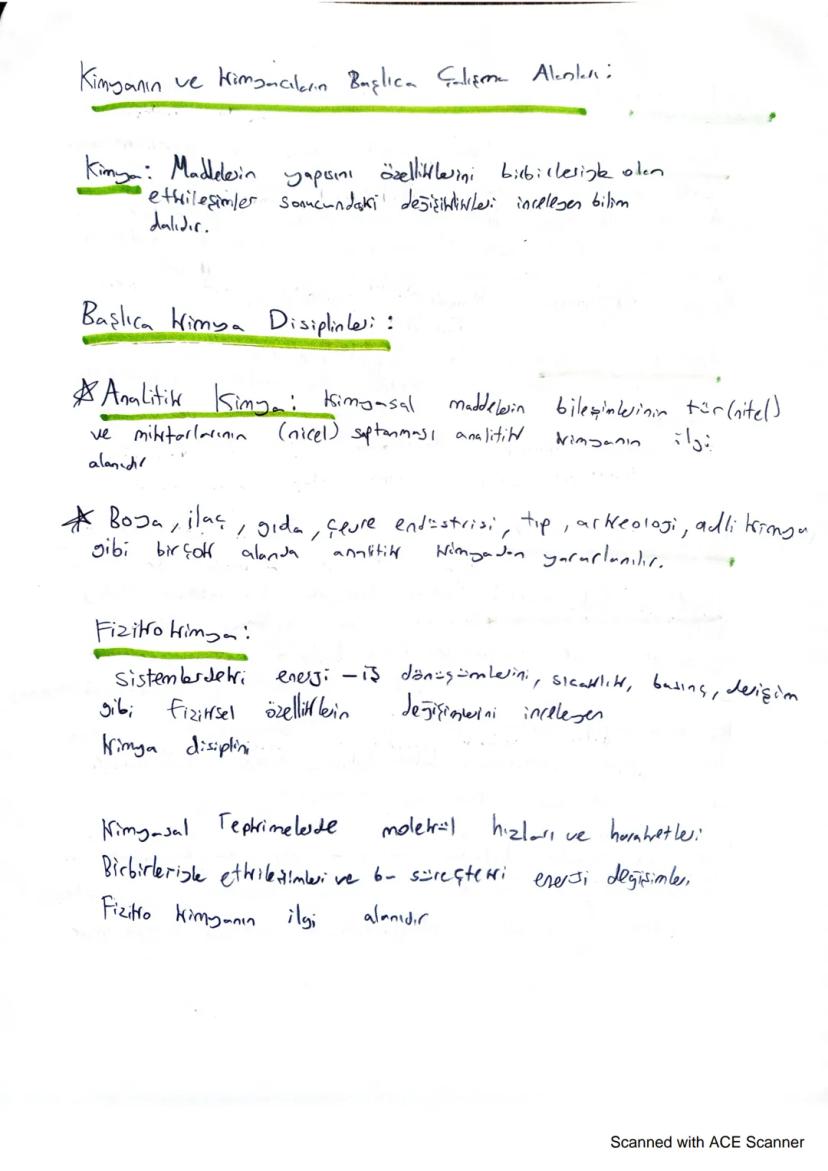 Kimyanın ve Kimyacıların Başlıca Çalışma Alanları:
Kimya: Maddelerin yapısını özelliklerini birbirleriyle olan
etkileşimler sonucundaki değişiklikleri inceleyen bilim
dalıdır.
Başlıca Kimya Disiplinleri:
Analitik Kimya: Kimyasal maddelerin bileşimlerinin tür(nitel)
ve miktarlarının (nicel) saptanması analitik kimyanın ilgi
alanıdır
Boya, ilaç, gıda, çevre endüstrisi, tıp, arkeoloji, adli kimya
gibi birçok alanda analitik kimyadan yararlanılır.
Fiziko kimya:
Sistemlerdeki enerji - iş dönüşümlerini, sıcaklık, basınç, derişim
gibi fiziksel özelliklerin değişimlerini inceleyen
kimya disiplini
Kimyasal Tepkimelerde molekül hızları ve hareketleri
Birbirleriyle etkileşimleri ve bu süreçteki enerji değişimleri
Fiziko kimyanın ilgi alanıdır
Scanned with ACE Scanner